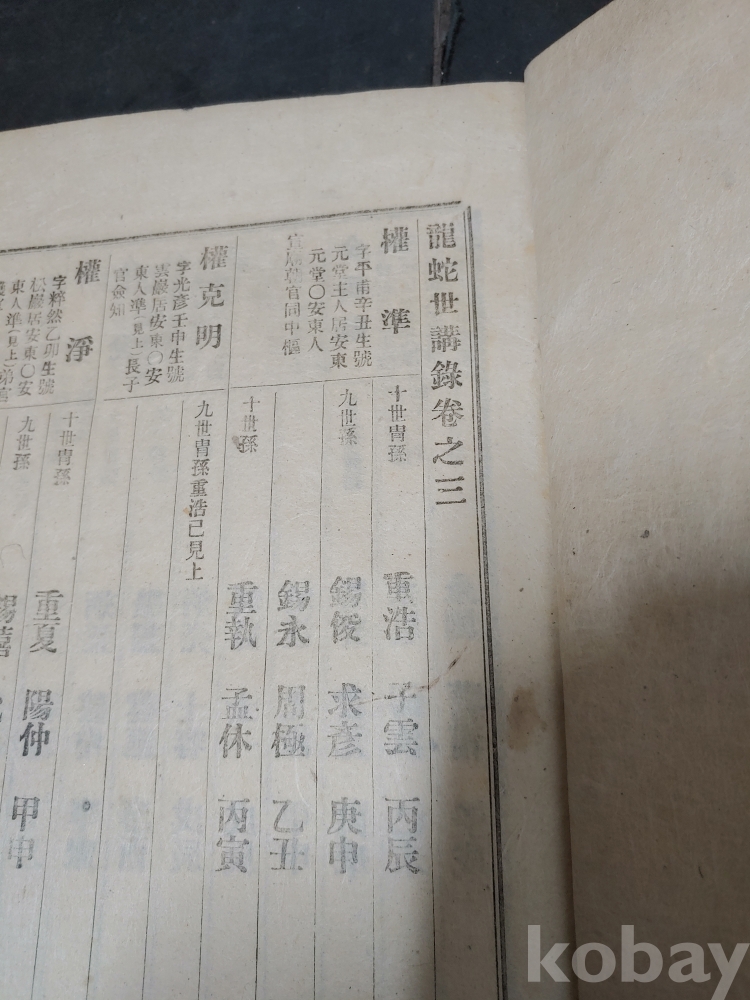 龍蛇世講錄卷之三
權準
字平甫辛丑生號
元堂主人居安東
元堂〇安東人
宣
官同中樞
十世胄孫
重浩 子雲 丙辰
九世孫
錫俊 求彥 庚申
錫永 周極 乙丑
十世孫
重執 孟休 丙寅
權克明
字光彥壬申生號
雲巖居安東〇安
東人準(見上)長子
官僉知
九世胄孫重浩已見上
權淨
字粹然乙卯生號
松巖居安東〇安
東人準(見上)弟官
十世胄孫
重夏 陽仲 甲申
九世孫
錫
kobay